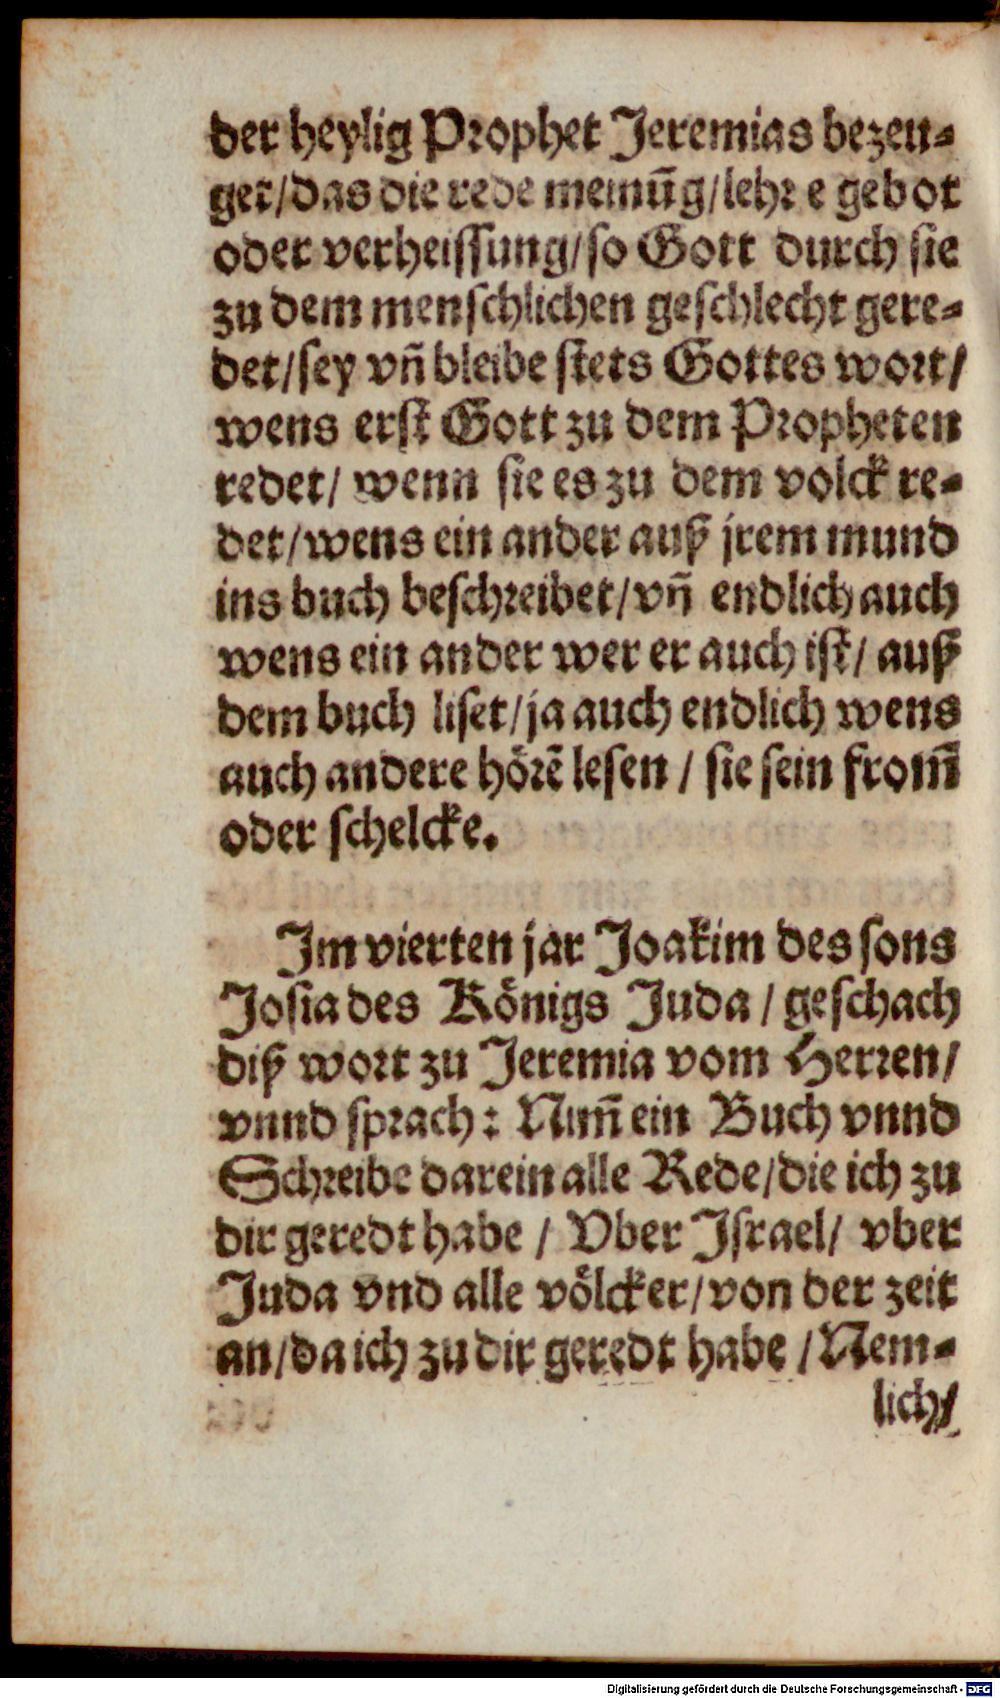 der heylig Prophet Jeremias bezeu-
get/das die rede meinūg/lehre gebot
oder verheissung/so Gott durch sie
zu dem menschlichen geschlecht gere-
det/sey vñ bleibe stets Gottes wort/
wens erst Gott zu dem Propheten
redet/ wenn sie es zu dem volck re-
det/wens ein ander auß jrem mund
ins buch beschreibet/vñ endlich auch
wens ein ander wer er auch ist/ auß
dem buch liset/ja auch endlich wens
auch andere hörē lesen / sie sein from̄
oder schelcke.
Im vierten jar Joakim des sons
Josia des Königs Juda / geschach
diß wort zu Jeremia vom Herren/
vnnd sprach: Nim̄ ein Buch vnnd
Schreibe darein alle Rede/die ich zu
dir geredt habe / Vber Israel/ vber
Juda vnd alle völcker/von der zeit
an/da ich zu dir geredt habe /Nem-
lich/
Digitalisierung gefördert durch die Deutsche Forschungsgemeinschaft - DFG